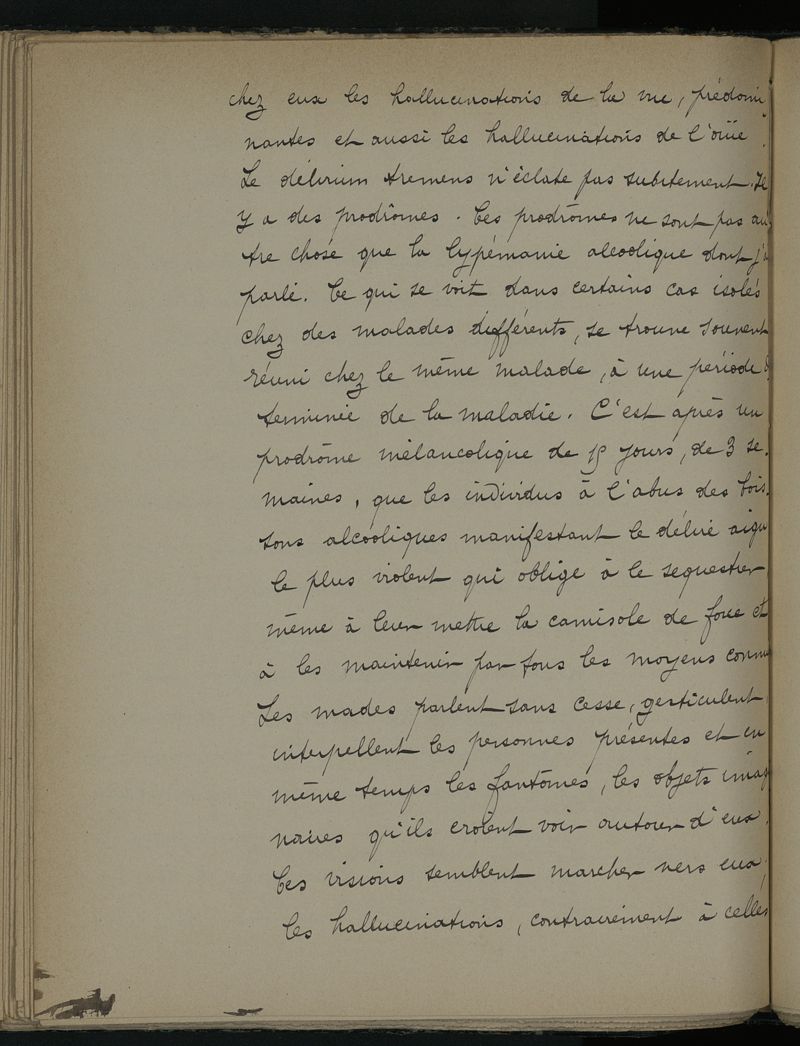 chez eux les hallucinations de la vue, prédomi
nantes et aussi les hallucinations de l'ouïe.
Le délirium tremens n'éclate pas subitement. Il
y a des prodrômes. Ces prodrômes ne sont pas au
tre chose que la lypémanie alcoolique dont j'ai
parlé. Ce qui se voit dans certains cas isolés
chez des malades différents, se trouve souvent
réuni chez le même malade, à une période dé
terminée de la maladie. C'est après un
prodrôme mélancolique de 15 jours, de 3 se.
maines, que les individus à l'abus des bois.
sons alcooliques manifestant le délire aigu
le plus violent qui oblige à le sequestrer
même à leur mettre la camisole de force et
à les maintenir par tous les moyens connus
Les mades parlent sans cesse, gesticulent
interpellent les personnes présentes et en
même temps les fantômes, les objets imagi
naires qu'ils croient voir autour d'eux.
Ces visions semblent marcher vers eux;
les hallucinations, contrairement à celles